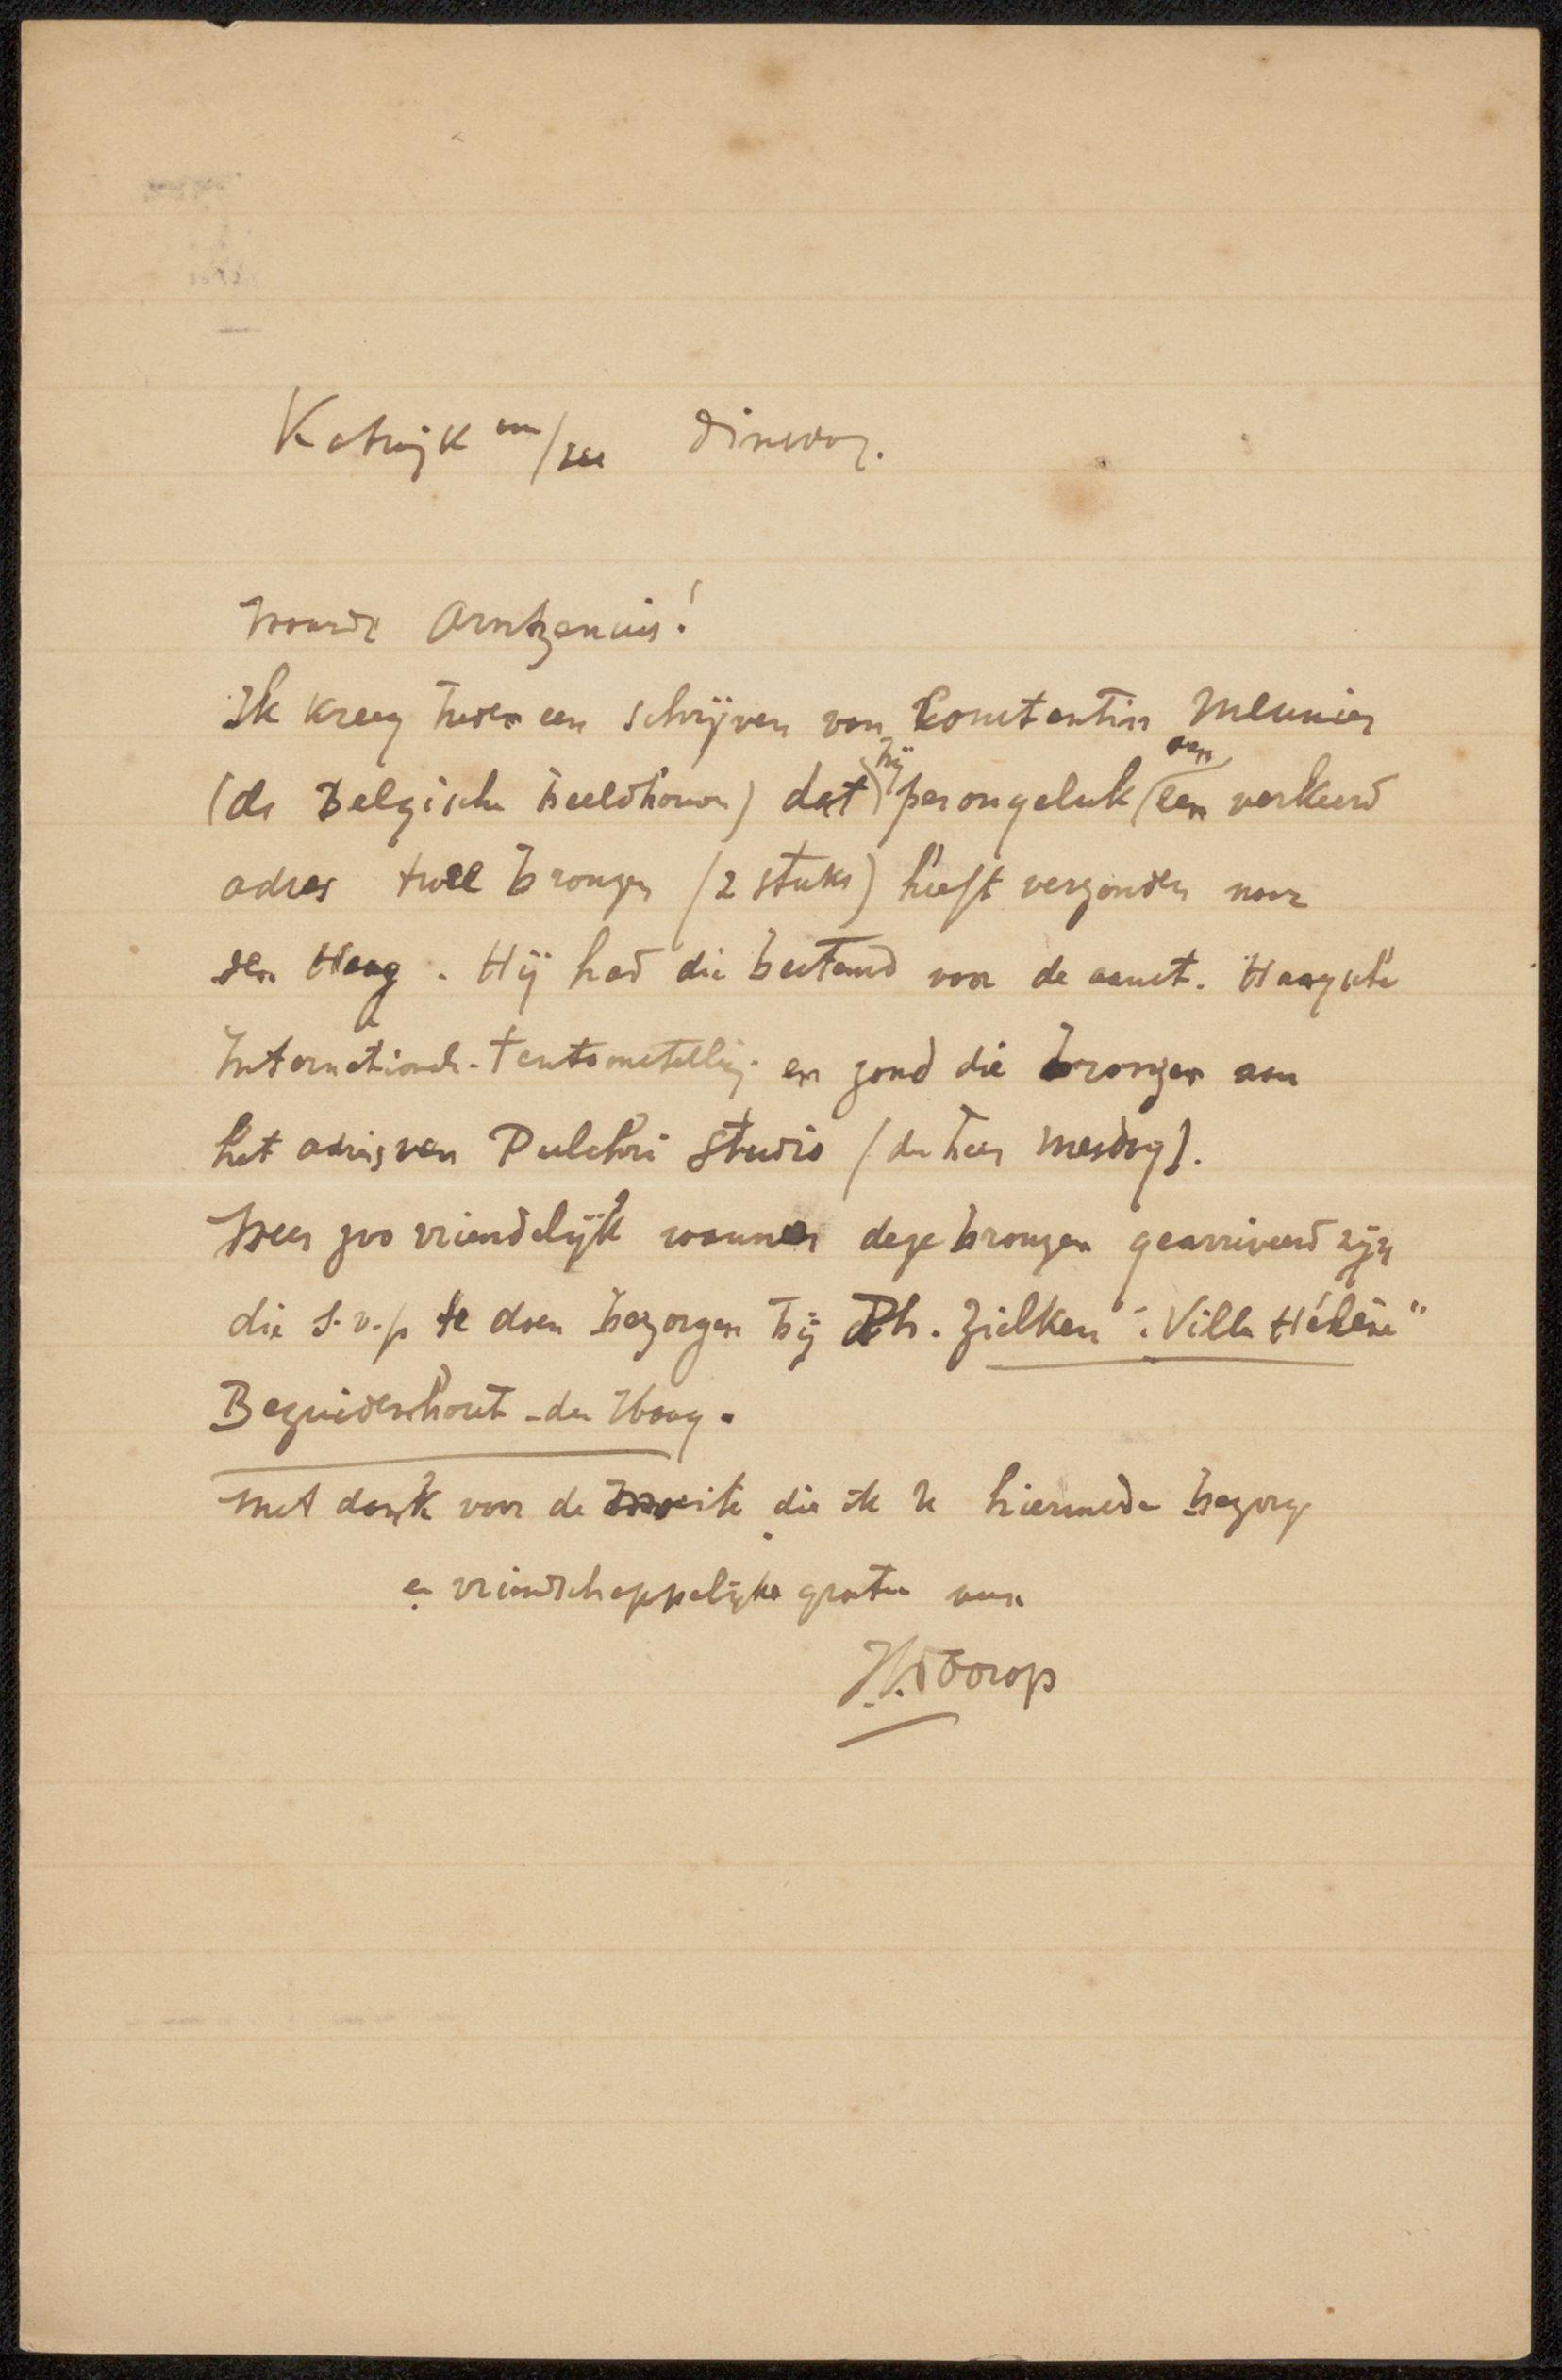 Katwijk aan/zee Dinsdag.
Waarde Arntzenius!
Ik kreeg heden een schrijven van Constantin Meunier
(de Belgische beeldhouwer) dat hij per ongeluk aan een verkeerd
adres twee bronzen (2 stuks) heeft verzonden naar
den Haag. Hij had die bestemd voor de aanst. Haagsche
Internationale-Tentoonstelling en zond die bronzen aan
het adres van Pulchri Studio (de heer Mesdag).
Wees zoo vriendelijk wanneer deze bronzen gearriveerd zijn
die s.v.p te doen bezorgen bij Ph. Zilken "Villa Hélène"
Bezuidenhout - den Haag.
Met dank voor de moeite die ik U hiermede bezorg
en vriendschappelijke groeten van
J.Th.Toorop